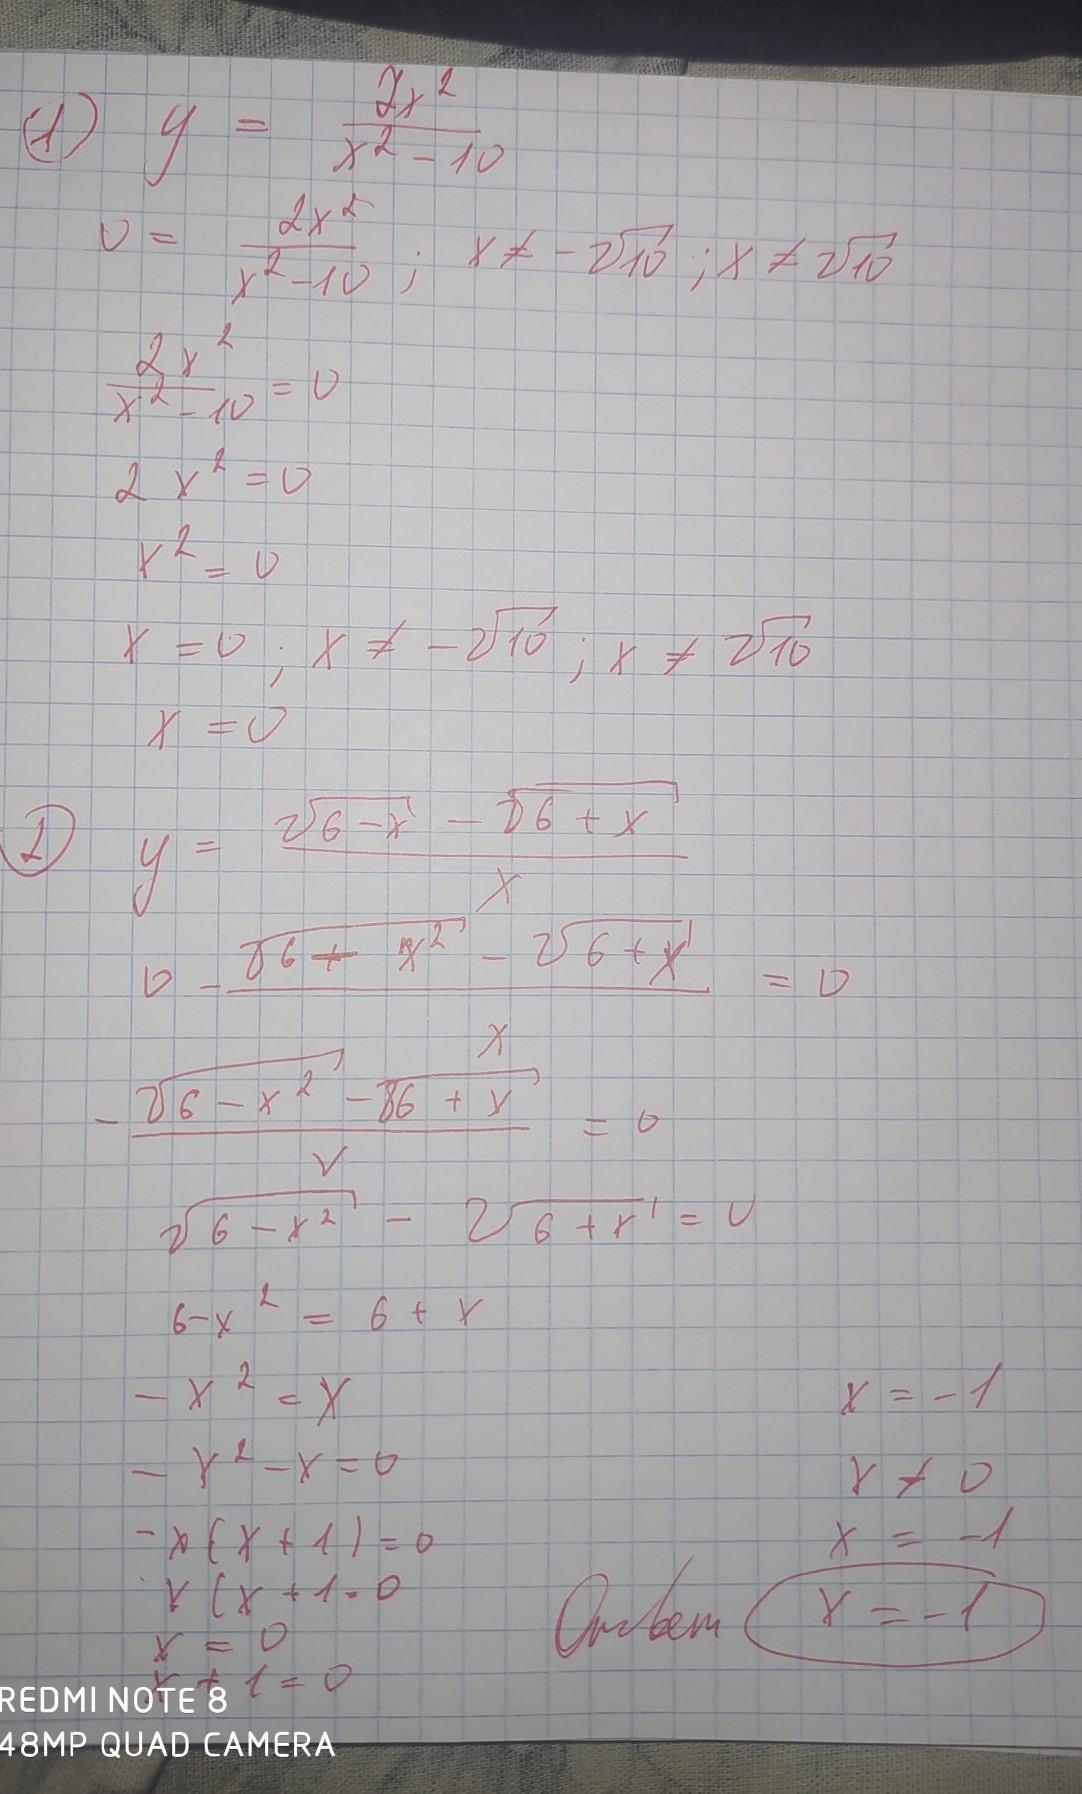 ① y = 2x² / x² - 10
0 = 2x² / x² - 10 ; x ≠ -√10 ; x ≠ √10
2x² / x² - 10 = 0
2x² = 0
x² = 0
x = 0 ; x ≠ -√10 ; x ≠ √10
x = 0
② y = √6-x - √6+x / x
0 - √6 - x² - √6+x / x = 0
- √6-x² - √6+x / x = 0
√6-x² - √6+x = 0
6-x² = 6+x
-x² = x
-x² - x = 0
-x(x+1) = 0
x(x+1=0
x = 0
x + 1 = 0
x = -1
x ≠ 0
x = -1
Ответ x = -1
REDMI NOTE 8
48MP QUAD CAMERA